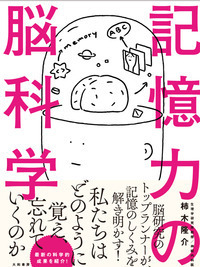 記憶力の
脳科学
memory
ABC
柿木隆介
脳研究の
トップランナーが、
記憶のしくみを
解き明かす!
私たちは
どのように
覚え、
忘れて
いくのか
最新の科学的
成果を紹介!
大和書房